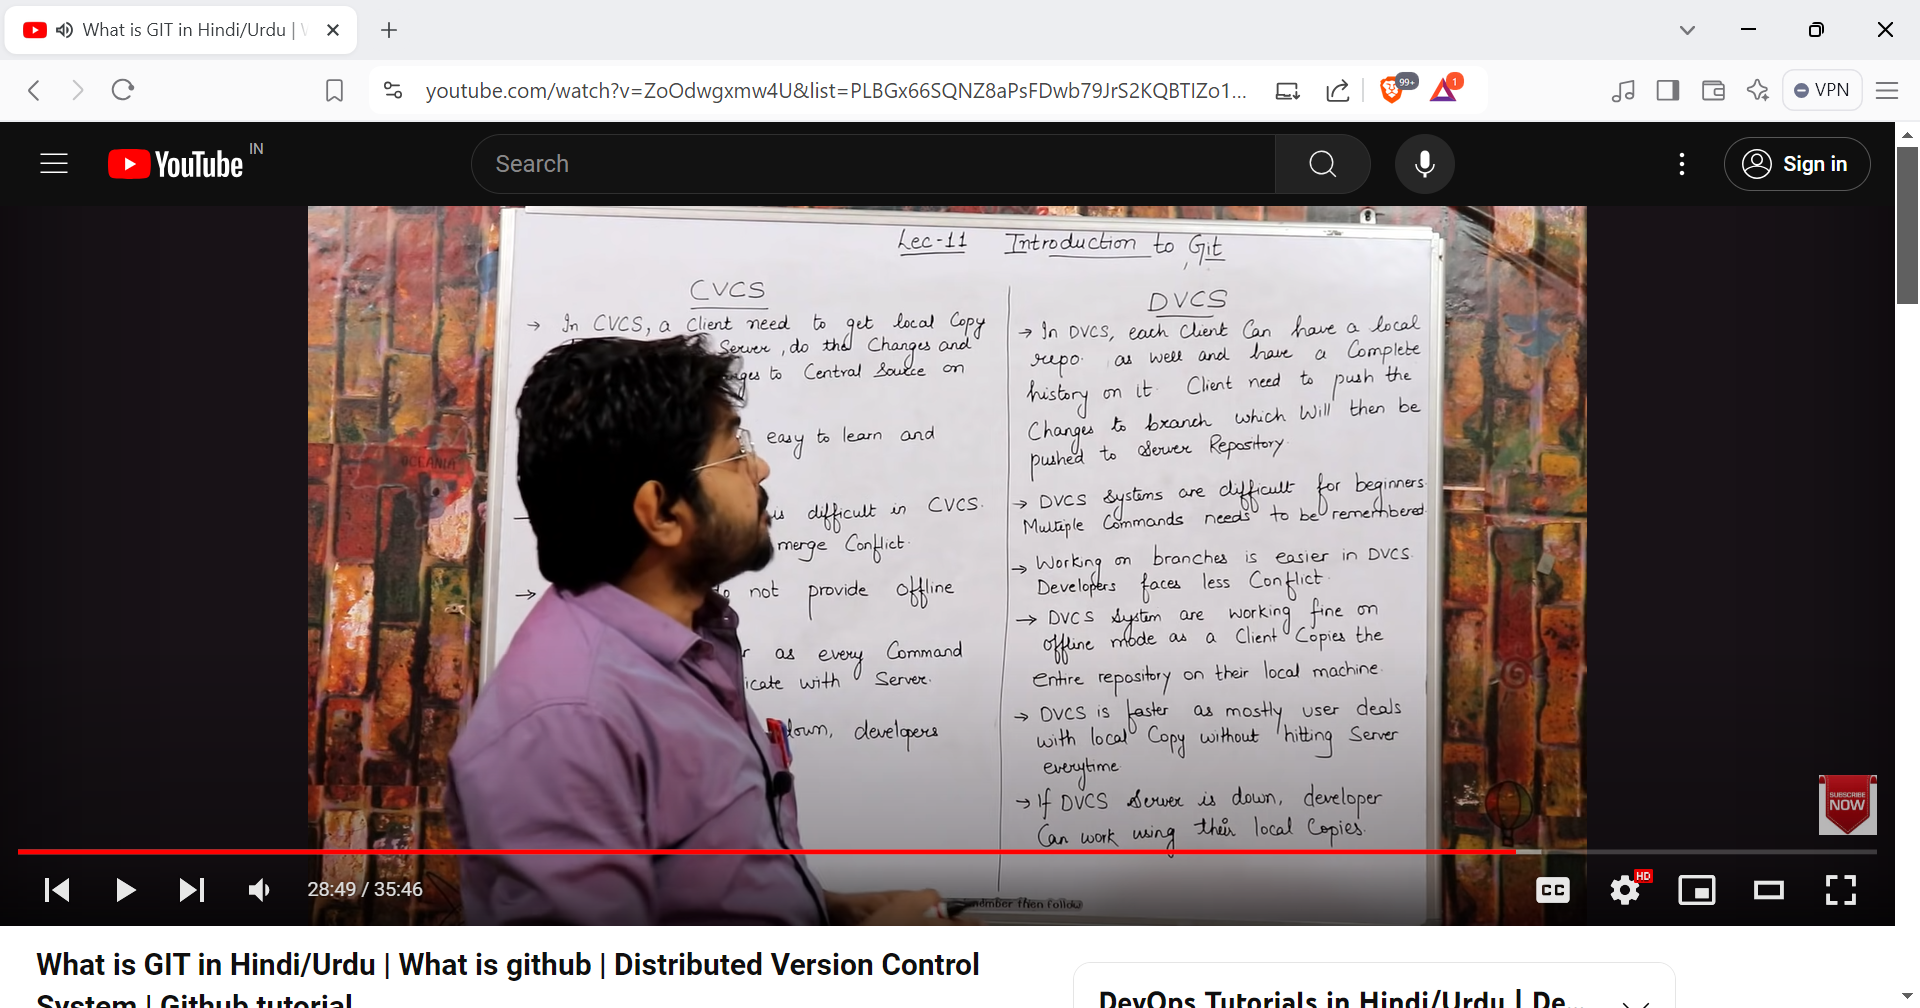 What is GIT in Hindi/Urdu |
youtube.com/watch?v=ZoOdwgxmw4U&list=PLBGx66SQNZ8aPsFDwb79JrS2KQBTIZo1...
99+
1
VPN
YouTube IN
Search
Sign in
Lec-11 Introduction to Git
CVCS
→ In CVCS, a Client need to get local Copy
Server, do the Changes and
to Central Source on
easy to learn and
is difficult in CVCS.
merge Conflict.
→ not provide offline
as every Command
with Server.
down, developers
DVCS
→ In DVCS, each Client Can have a local
repo. as well and have a Complete
history on it. Client need to push the
Changes to branch which Will then be
pushed to Server Repository.
→ DVCS Systems are difficult for beginners.
Multiple Commands needs to be remembered.
→ Working on branches is easier in DVCS.
Developers faces less Conflict.
→ DVCS System are working fine on
offline mode as a Client Copies the
entire repository on their local machine.
→ DVCS is faster as mostly user deals
with local Copy without hitting Server
everytime.
→ If DVCS Server is down, developer
Can work using their local Copies.
OCEANIA
then follow
SUBSCRIBE
NOW
28:49 / 35:46
CC
HD
What is GIT in Hindi/Urdu | What is github | Distributed Version Control
System | Github tutorial
DevOps Tutorials in Hindi/Urdu | De...